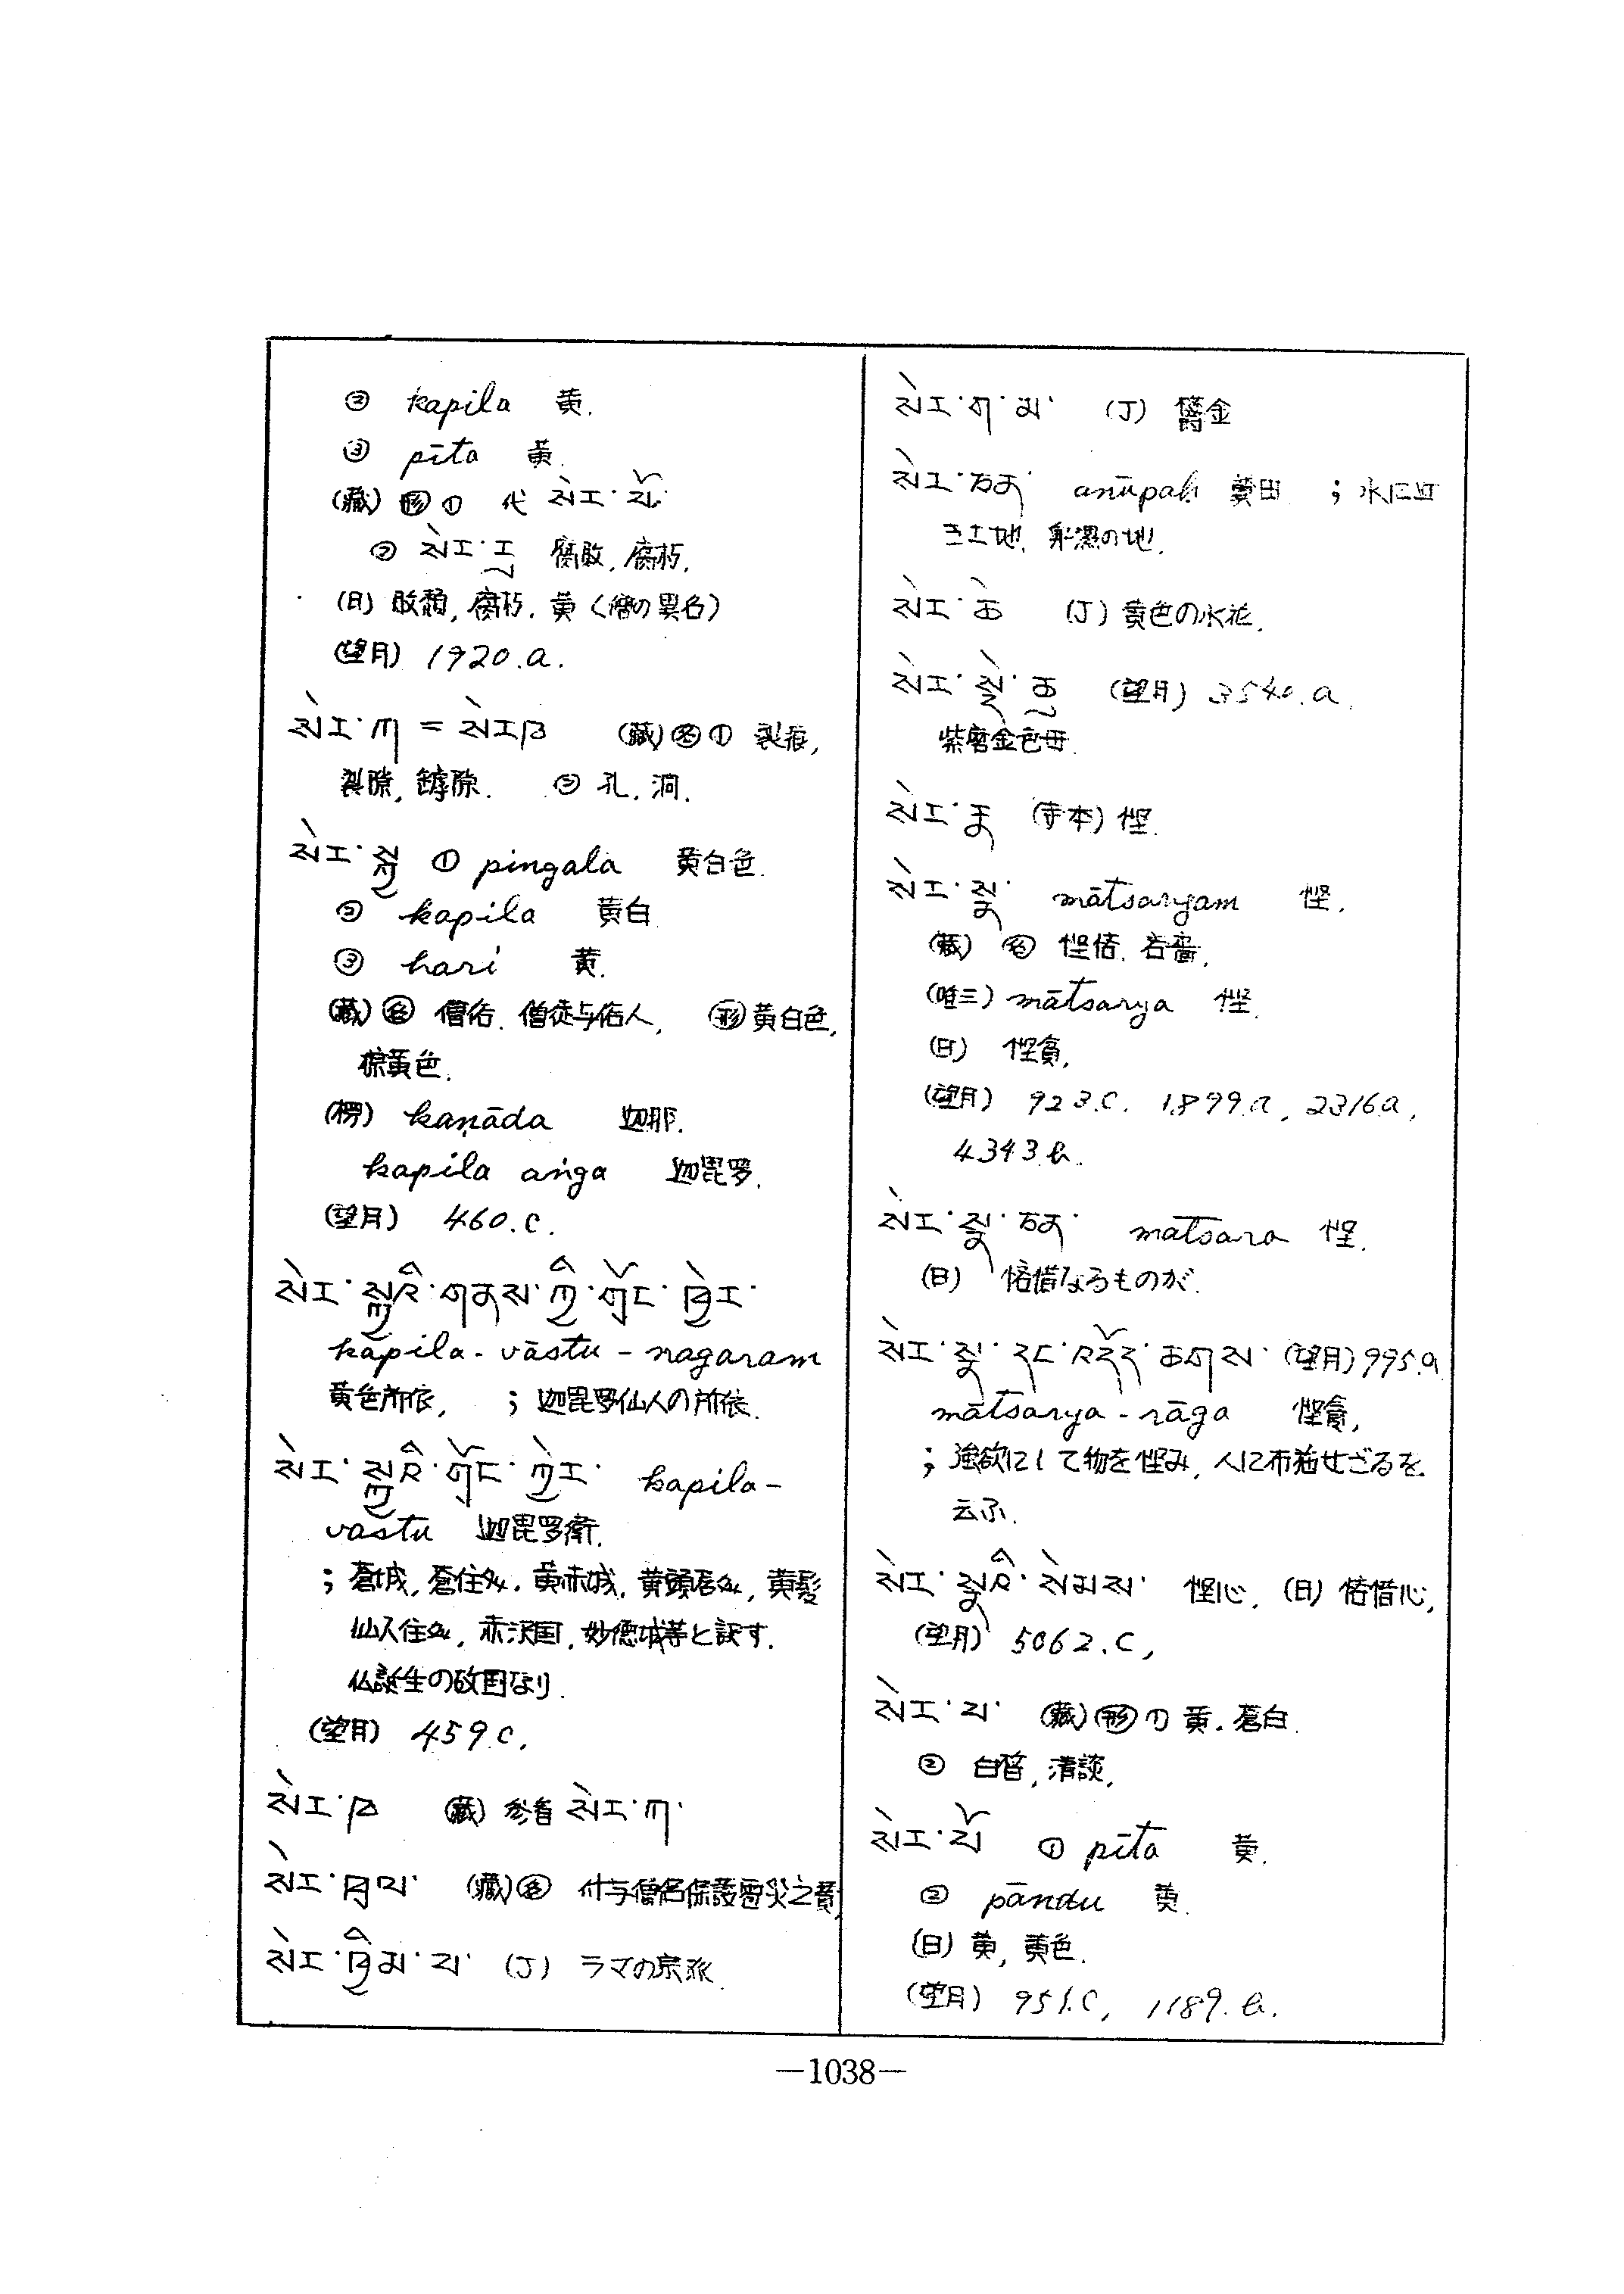 ② kapila 黄.
③ pīta 黄.
(蔵) 形 ① 代 སེར་པོ་
② སེར་རུ 腐敗, 腐朽.
(日) 敗頽, 腐朽. 黄 (僧の異名)
(望月) 1920.a.
སེར་ཀ = སེར་ཁ (蔵) 名 ① 裂痕,
裂隙, 罅隙. ② 孔, 洞.
སེར་སྐྱ ① pingala 黄白色.
② kapila 黄白
③ hari 黄.
(蔵) 名 僧俗. 僧徒与俗人, 形 黄白色,
棕黄色.
(楞) kaṇāda 迦那.
kapila aṅga 迦毘罗.
(望月) 460.c.
སེར་སྐྱའི་གནས་ཀྱི་གྲོང་ཁྱེར་
kapila-vāstu-nagaram
黄色所依, ; 迦毘罗仙人の所依.
སེར་སྐྱའི་གྲོང་ཁྱེར་ kapila-
vastu 迦毘罗衛.
; 蒼城, 蒼住処. 黄赤城, 黄頭居処, 黄髪
仙人住処, 赤沢国, 妙徳城等と訳す.
仏誕生の故国なり.
(望月) 459.c.
སེར་ཁ (蔵) 参看 སེར་ཀ་
སེར་ཁྲལ་ (蔵) 名 付与僧名保護雹災之費
སེར་ཁྲིམ་པ་ (J) ラマの宗派
སེར་ག་མ་ (J) 鬱金
སེར་ཅན་ anūpaḥ 黄田 ; 水に近
き土地, 卑濕の地.
སེར་ཆེ (J) 黄色の水花.
སེར་སྡེ་ཆུ (望月) 3540.a.
紫磨金色母.
སེར་ན (寺本) 慳.
སེར་སྣ་ mātsaryam 慳.
(蔵) 名 慳悋. 吝嗇.
(唯三) mātsarya 慳.
(日) 慳貪.
(望月) 923.c. 1899.a, 2316a,
4343.b.
སེར་སྣ་ཅན་ mātsara 慳.
(日) 悋惜なるものが.
སེར་སྣ་དང་འདོད་ཆགས་ (望月) 995.a
mātsarya-rāga 慳貪,
; 強欲にして物を慳み, 人に布施せざるを
云ふ.
སེར་སྣའི་སེམས་ 慳心, (日) 悋惜心,
(望月) 5062.c,
སེར་པ་ (蔵) 形 ① 黄. 蒼白.
② 白晳, 清談,
སེར་པོ ① pīta 黄.
② pāndu 黄.
(日) 黄, 黄色.
(望月) 951.c, 1189.b.
—1038—